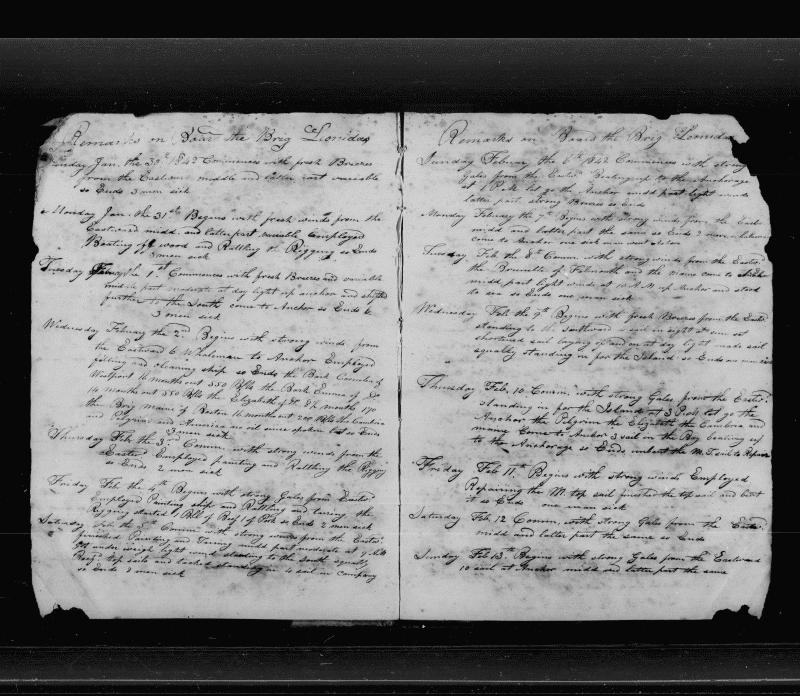 Remarks on Board the Brig Leonidas
Sunday Jan. the 30th 1842 Commences with fresh Breezes
from the Eastward middle and latter part variable
so Ends 3 men sick
Monday Jan the 31st Begins with fresh winds from the
Eastward midd. and latter part variable Employed
Boating of wood and Rattling the Rigging so Ends
3 men sick
Tuesday the 1st Commences with fresh Breezes and variable
middle part moderate at day light up anchor and shifted
further to the South come to Anchor so Ends
3 men sick
Wednesday Febuary the 2nd Begins with strong winds from
the Eastward 6 Whaleman to Anchor Employed
and cleaning ship so Ends the Bark of
Westport 16 months out 550 Blls the Bark Emma of Do
14 months out 550 Blls the Elizabeth of Do 8½ months 170
the Brig of Boston 16 months out 200 Blls the Cambria
and Pilgrim and America no oil since spoken last so Ends
3 men sick
Thursday Feb the 3rd Comm. with strong winds from the
Easterd Employed painting and Rattling the Rigging
so Ends 2 men sick
Friday Feb the 4th Begins with strong Gales from Easterd
Employed Painting ship and Rattling and tarring the
Rigging started 1 Bll of Beef 1 of Pork so Ends 2 men sick
Saturday Feb the 5th Comm. with strong winds from the Easterd
finished Painting and Taring midd part moderate at 9 AM
got under weigh light winds standing to the South
Top sails and tacked standing in 10 sail in company
so Ends 2 men sick
Remarks on Board the Brig Leonidas
Sunday Febuary the 6th 1842 Commences with strong
Gales from the Easterd Beating up to the Anchorage
at 1 PM let go the Anchor midd part light winds
latter part strong Breezes so Ends
Monday Febuary the 7th Begins with strong winds from the East
midd and latter part the same so Ends 2 more whalemen
come to Anchor one sick man
Tuesday Feb the 8th Comm. with strong winds from the Easterd
the of Falmouth and the come to Anchor
midd part light winds at 10 A.M up Anchor and stood
to sea so Ends one man sick
Wednesday Feb the 9th Begins with fresh Breezes from the Easterd
standing to the Southward 11 sail in sight at sun set
shortened sail laying of and on at day light made sail
squally standing in for the Island so Ends one man sick
Thursday Feb. 10 Comm. with strong Gales from the Easterd
standing in for the Island at 3 P.M let go the
Anchor the Pilgrim the Elizabeth the Cambria and
come to Anchor 3 sail in the Bay beating up
to the Anchorage so Ends unbent the M. T. sail to Repair
Friday Feb 11th Begins with strong winds Employed
Repairing the M top sail finished the top sail and bent
it so Ends one man sick
Saturday Feb. 12 Comm. with strong Gales from the Easterd
midd and latter part the same so Ends
Sunday Feb 13th Begins with strong Gales from the Eastward
10 sail at Anchor midd and latter part the same